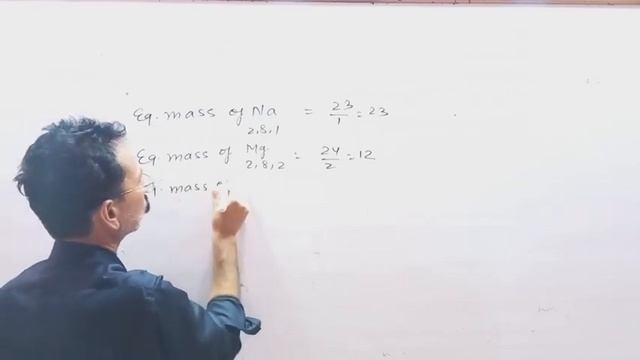 Eq. mass of Na = 23/1 = 23
2,8,1
Eq mass of Mg = 24/2 = 12
2,8,2
Eq. mass of